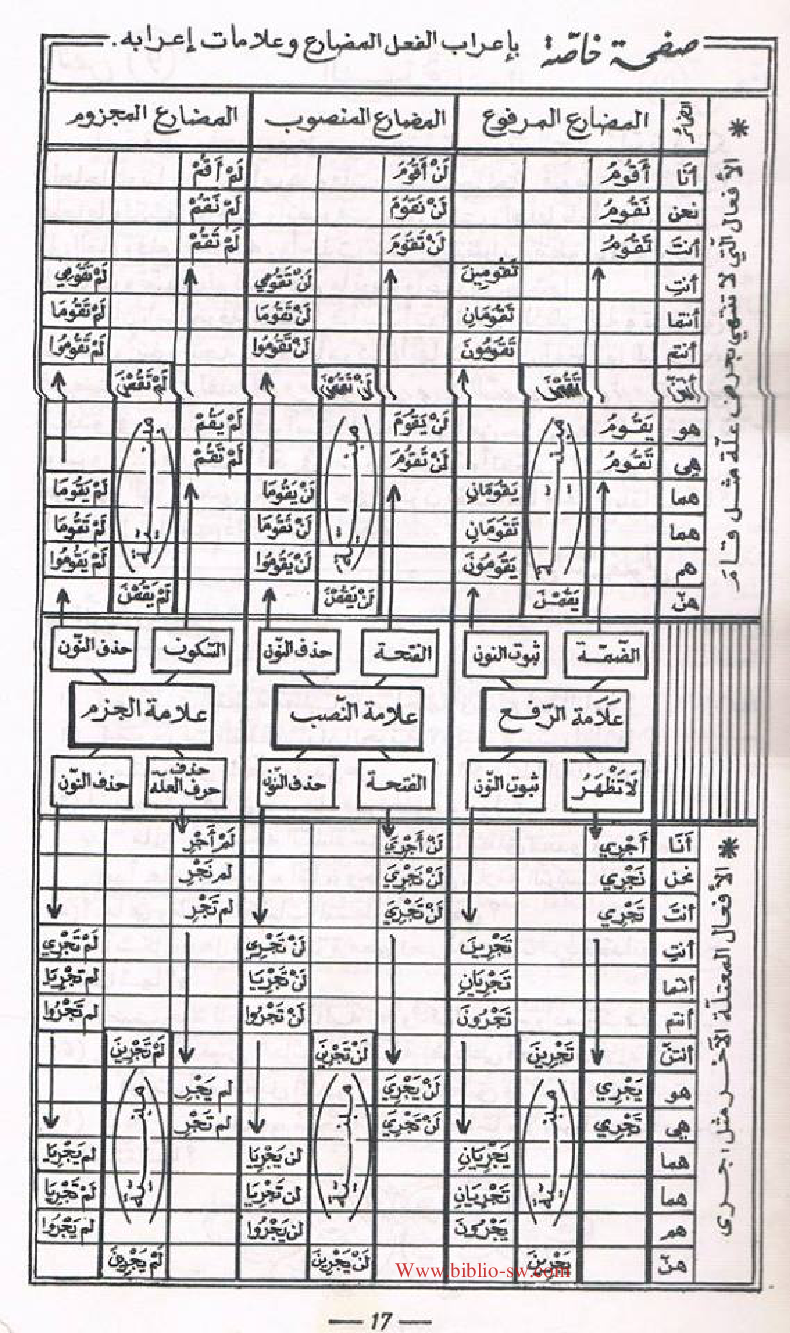 صفحة خاصّة بإعراب الفعل المضارع وعلامات إعرابه.
* الأفعال الّتي لا تنتهي بحرف علّة مثل قامَ
الضمائر المضارع المرفوع المضارع المنصوب المضارع المجزوم
أنَا أَقُومُ لَنْ أَقُومَ لَمْ أَقُمْ
نحن نَقُومُ لَنْ نَقُومَ لَمْ نَقُمْ
أنتَ تَقُومُ لَنْ تَقُومَ لَمْ تَقُمْ
أنتِ تَقُومِينَ لَنْ تَقُومِي لَمْ تَقُومِي
أنتما تَقُومَانِ لَنْ تَقُومَا لَمْ تَقُومَا
أنتم تَقُومُونَ لَنْ تَقُومُوا لَمْ تَقُومُوا
أنتنّ تَقُمْنَ لَنْ تَقُمْنَ لَمْ تَقُمْنَ
هو يَقُومُ لَنْ يَقُومَ لَمْ يَقُمْ
هي تَقُومُ لَنْ تَقُومَ لَمْ تَقُمْ
هما يَقُومَانِ لَنْ يَقُومَا لَمْ يَقُومَا
هما تَقُومَانِ لَنْ تَقُومَا لَمْ تَقُومَا
هم يَقُومُونَ لَنْ يَقُومُوا لَمْ يَقُومُوا
هنّ يَقُمْنَ لَنْ يَقُمْنَ لَمْ يَقُمْنَ
(مبنيّة) (مبنيّة) (مبنيّة)
الضّمّة ثبوت النون الفتحة حذف النّون السّكون حذف النّون
عَلَامَة الرّفع علامة النّصب علامة الجزم
لَا تَظْهَرُ ثبوت النّون الفتحة حذف النّون حذف حرف العلّة حذف النّون
* الأفعال المعتلّة الآخر مثل: جرى
أنَا أَجْرِي لَنْ أَجْرِيَ لَمْ أَجْرِ
نحن نَجْرِي لَنْ نَجْرِيَ لم نَجْرِ
أنتَ تَجْرِي لَنْ تَجْرِيَ لم تَجْرِ
أنتِ تَجْرِينَ لَنْ تَجْرِي لم تَجْرِي
أنتما تَجْرِيَانِ لَنْ تَجْرِيَا لم تَجْرِيَا
أنتم تَجْرُونَ لَنْ تَجْرُوا لم تَجْرُوا
أنتنّ تَجْرِينَ لَنْ تَجْرِينَ لَمْ تَجْرِينَ
هو يَجْرِي لَنْ يَجْرِيَ لم يَجْرِ
هي تَجْرِي لَنْ تَجْرِيَ لم تَجْرِ
هما يَجْرِيَانِ لن يَجْرِيَا لم يَجْرِيَا
هما تَجْرِيَانِ لن تَجْرِيَا لَمْ تَجْرِيَا
هم يَجْرُونَ لن يَجْرُوا لم يَجْرُوا
هنّ يَجْرِينَ لَنْ يَجْرِينَ لَمْ يَجْرِينَ
(مبنيّة) (مبنيّة) (مبنيّة)
Www.biblio-sw.com
— 17 —